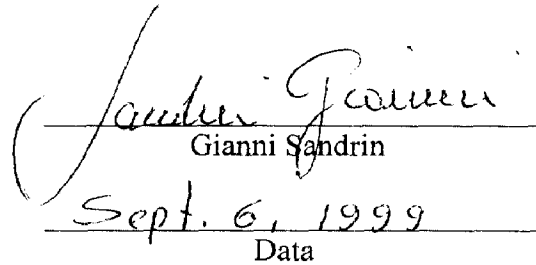 Sandrin Gianni
Gianni Sandrin
Sept. 6, 1999
Data